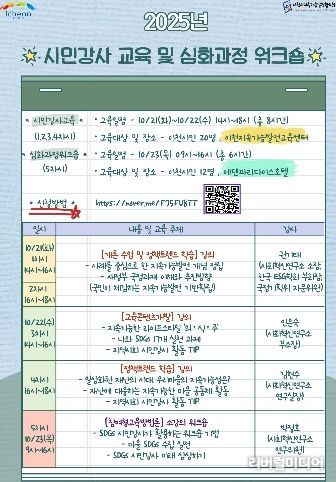 Icheon
2025년
시민강사 교육 및 심화과정 워크숍
시민강사교육
(1,2,3,4차시)
• 교육일정 - 10/21(화)~10/22(수) 14시~18시 (총 8시간)
• 교육대상 및 장소 - 이천시민 20명, 이천지속가능발전교육센터
심화과정워크숍
(5차시)
• 교육일정 - 10/23(목) 09시~16시 (총 6시간)
• 교육대상 및 장소 - 이천시민 12명, 에덴파라다이스호텔
신청방법
https://naver.me/
일시
내용 및 교육 주제
강사
10/21(화)
14시~16시
16시~18시
[기본 수업 및 정책트렌드 학습] 강의
- 사례를 중심으로 한 지속가능발전 개념 정립
- 새정부 국정과제 이해와 추진방향
(국민이 체감하는 지속가능발전 기반확립)
(사회혁신연구소 소장,
10/22(수)
3차시
14시~16시
[교육콘텐츠개발] 강의
- 지속가능한 라이프스타일 '의·식·주'
- 나와 SDGs 17개 실천 과제
- 지역사회 시민강사 활동 TIP
인은숙
(사회혁신연구소
부소장)
4차시
16시~18시
[정책트렌드 학습] 강의
- 일상화된 재난의 시대 우리마을의 지속가능성은?
- 재난에 대응하는 지속가능한 마을 공동체 활동
- 지역사회 시민강사 활동 TIP
김현수
(사회혁신연구소
연구실장)
5차시
10/23(목)
9시~16시
[참여형교육방법론] 소강의 워크숍
- SDGs 시민강사가 활용하는 워크숍 기법
- 마을 SDGs 수업 실전
- SDGs 시민강사 미래 설계하기
박정호
(사회혁신연구소
연구위원)
리버럴미디어